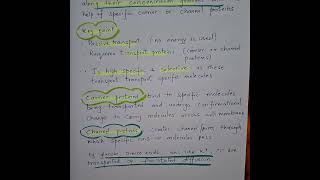 along their concentration gradient with
help of specific carrier or channel proteins
Key point
• Passive transport (no energy is used)
• Requires transport proteins (carrier or channel
proteins)
• Is high specific & selective as these
transport specific molecules
Carrier proteins bind to specific molecules
being transported and undergo conformational
change to carry molecules across cell membrane
Channel proteins creates channel pores through
which specific ions or molecules pass
Eg glucose, amino acids, ions like K+
transported by facilitated diffusion